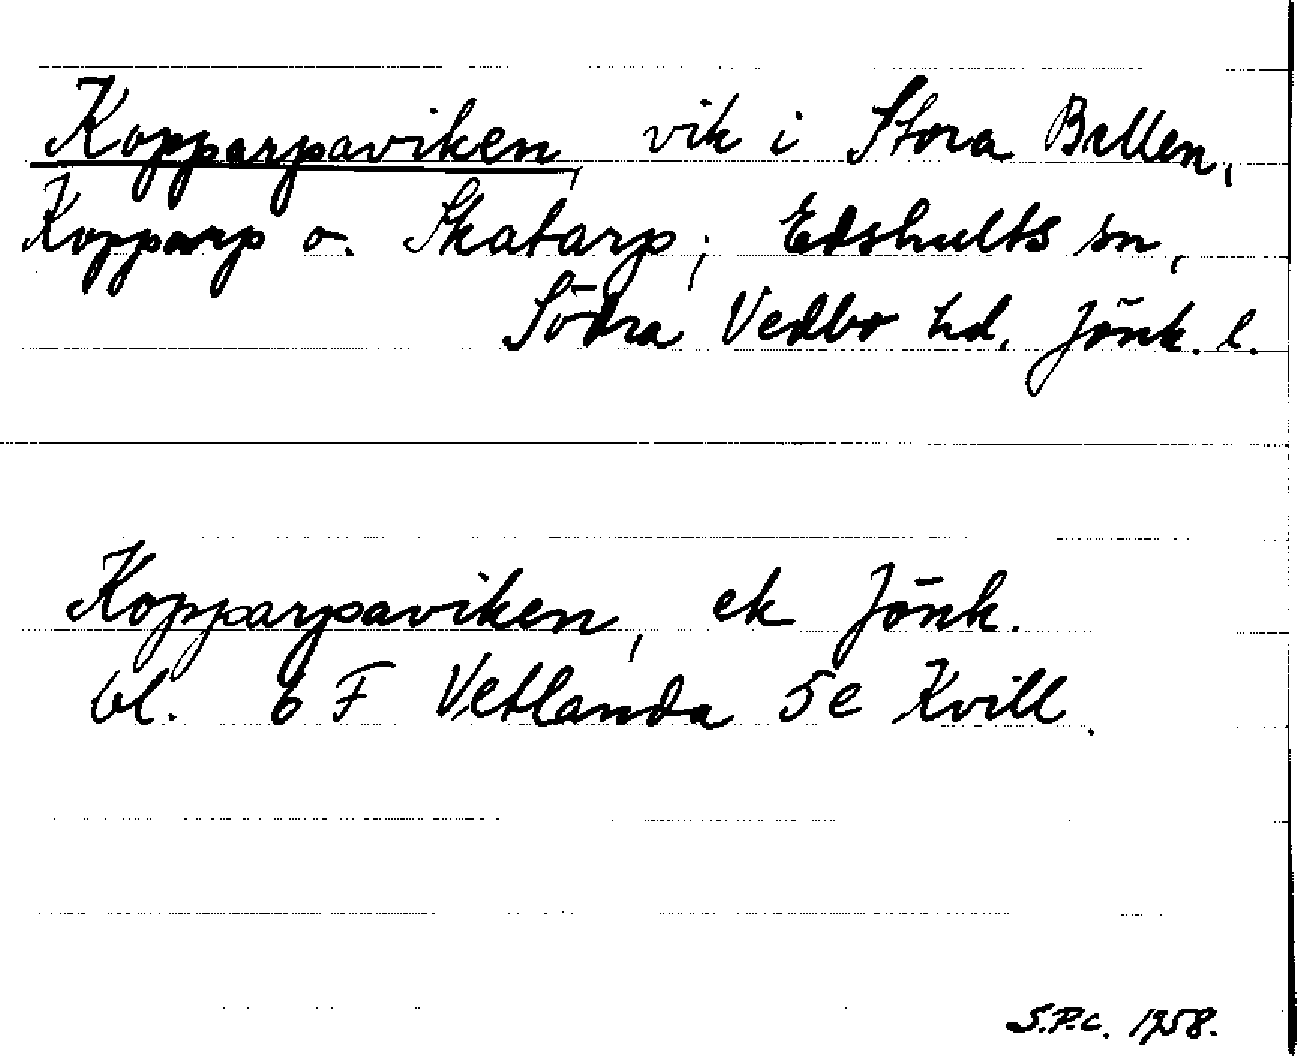 Kopparpaviken, vik i Stora Bellen,
Kopparp o. Skatarp; Edshults sn,
Södra Vedbo hd. Jönk. l.
Kopparpaviken, ek Jönk.
bl. 6 F Vetlanda 5 e Kvill.
S.P.C. 1958.